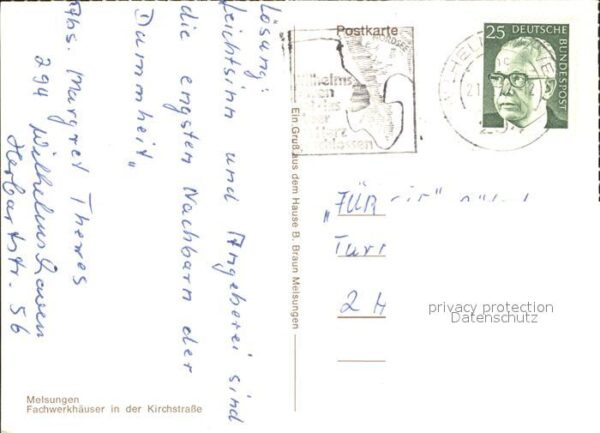 Lösung:
Leichtsinn und Angeberei sind
die engsten Nachbarn der
Dummheit"
Abs. Margret Theves
294 Wilhelmshaven
Herbartstr. 56
Melsungen
Fachwerkhäuser in der Kirchstraße
Ein Gruß aus dem Hause B. Braun Melsungen
Postkarte
NORDSEE
25
DEUTSCHE
BUNDESPOST
"FÜR
2 H
privacy protection
Datenschutz